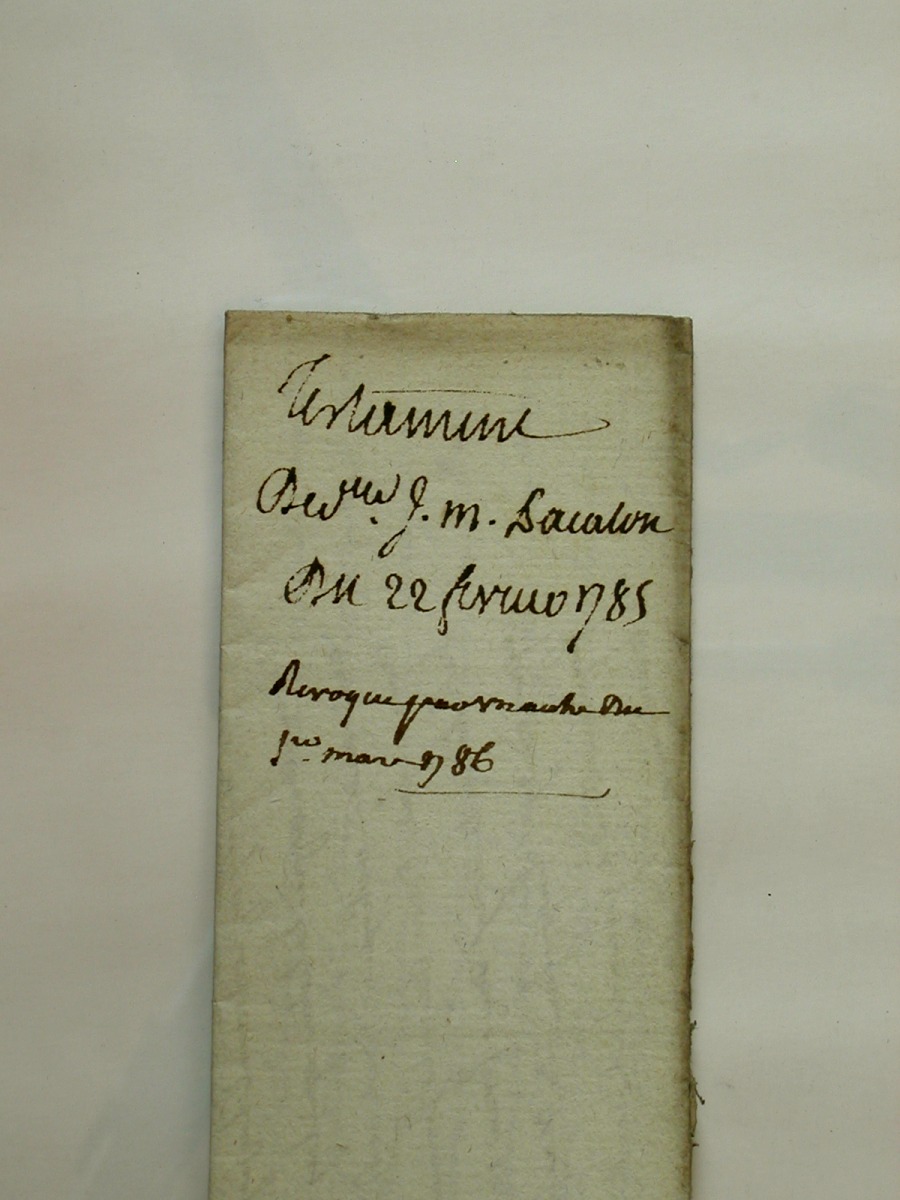 Testament
De dlle. J. M. Lacalon
Du 22 fevrier 1785
Revoqué par un acte Du
1er. mars 1786